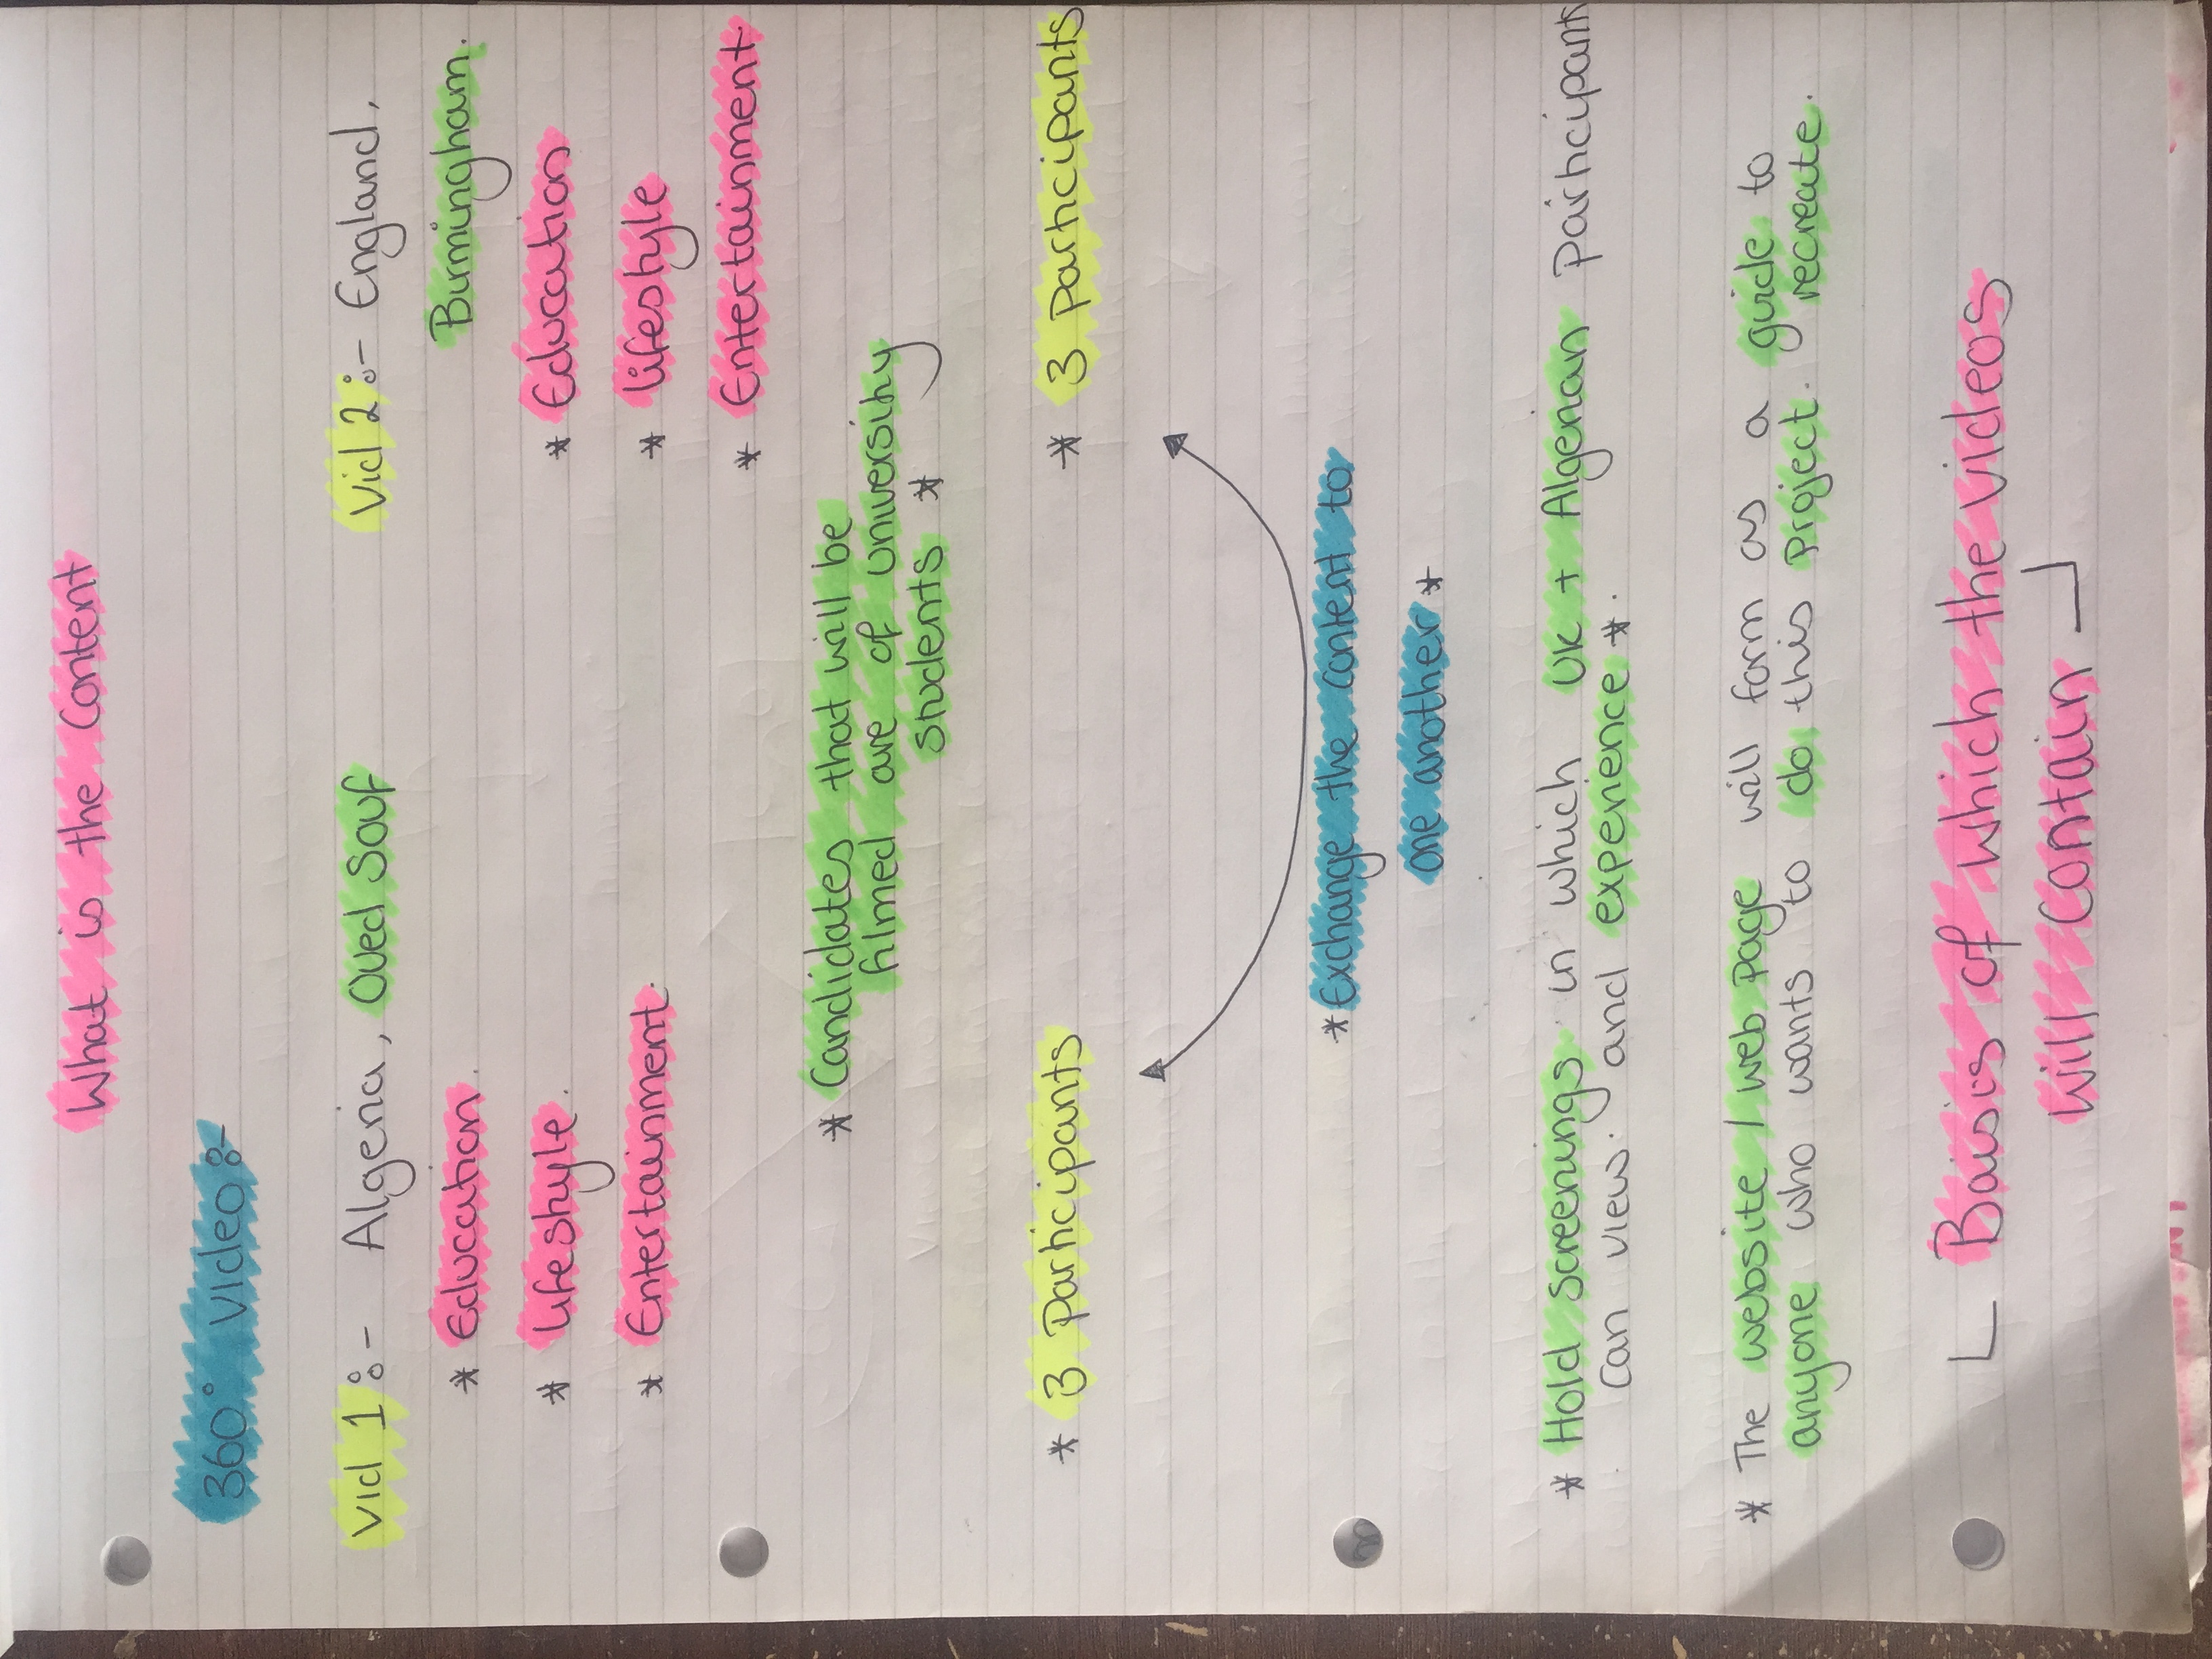 What is the Content
360° Video :-
Vid 1 :- Algeria, Oued Souf
* Education.
* lifestyle.
* Entertainment.
Vid 2 :- England,
Birmingham.
* Education
* lifestyle
* Entertainment.
* Candidates that will be
filmed are of University
students *
* 3 Participants
* 3 Participants
* Exchange the content to
one another *
* Hold screenings in which UK + Algerian Participants
can view. and experience *.
* The website / web page will form as a guide to
anyone who wants to do this Project. recreate.
Baisis of which the videos
will contain